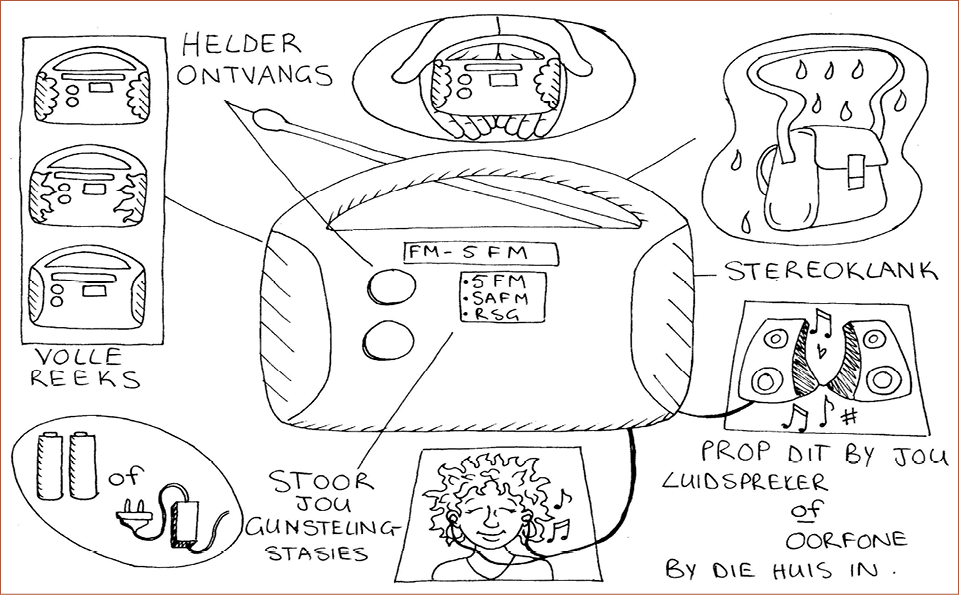 HELDER
ONTVANGS
FM-5FM
• 5FM
• SAFM
• RSG
STEREOKLANK
VOLLE
REEKS
of
STOOR
JOU
GUNSTELING-
STASIES
#
PROP DIT BY JOU
LUIDSPREKER
of
OORFONE
BY DIE HUIS IN.